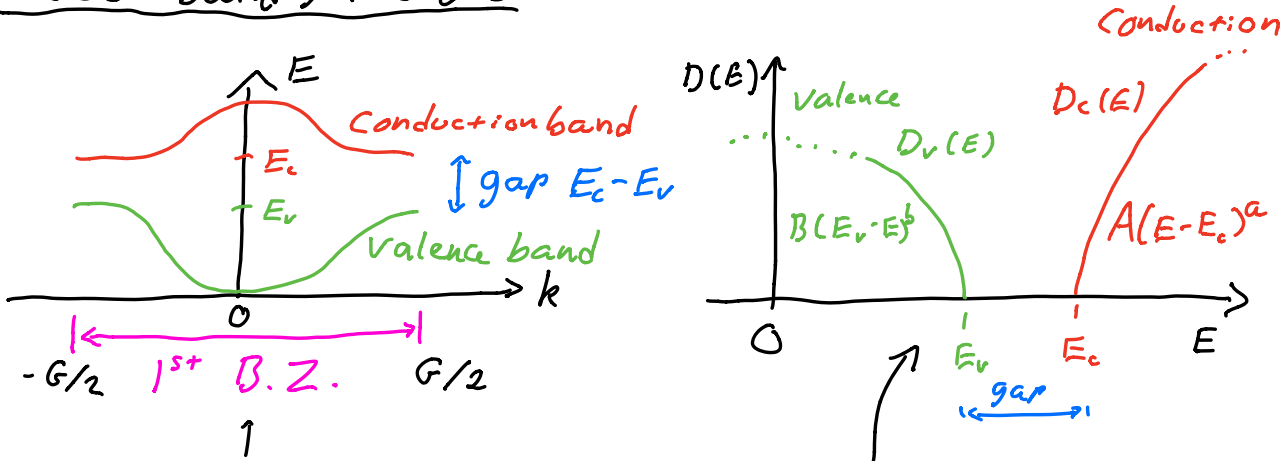 E
Conduction band
E_c
gap E_c-E_v
E_v
Valence band
k
0
-G/2
1st B.Z.
G/2
Conduction
D(E)
Valence
D_c(E)
D_v(E)
B(E_v-E)^b
A(E-E_c)^a
0
E_v
E_c
E
gap